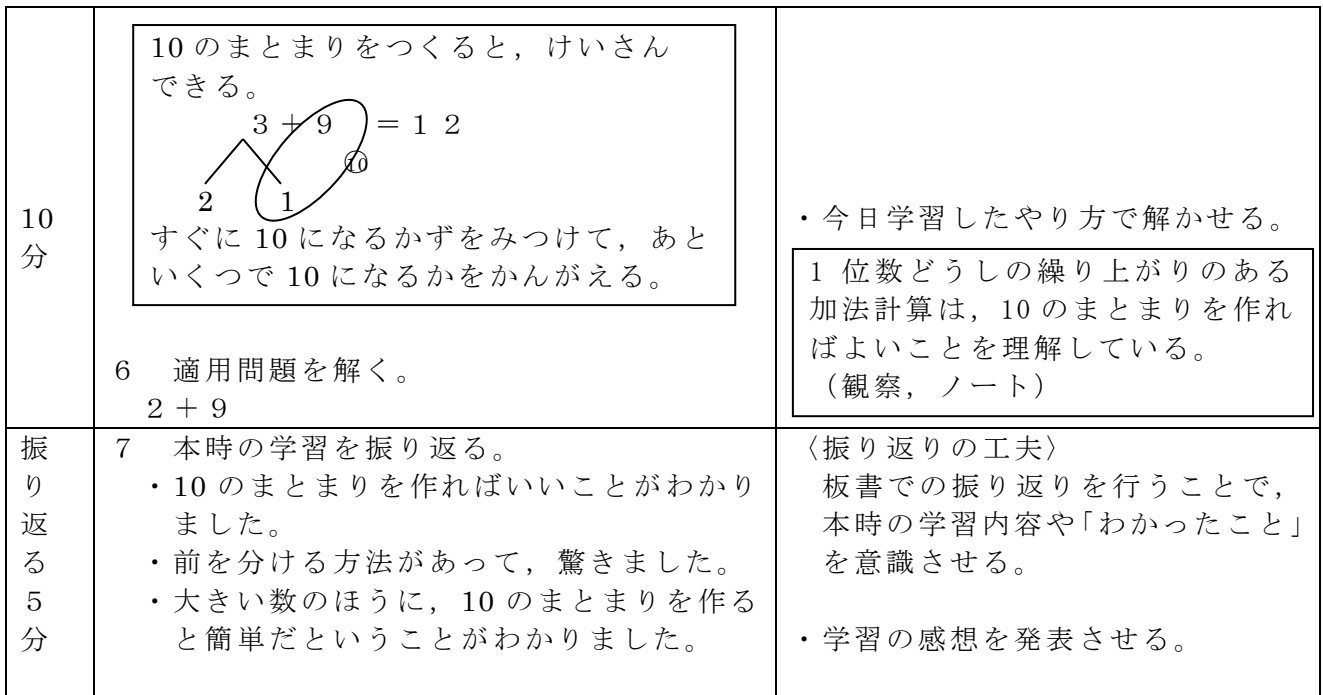 10
分
10のまとまりをつくると，けいさん
できる。
３＋９＝１２
⑩
2 1
すぐに10になるかずをみつけて，あと
いくつで10になるかをかんがえる。
６ 適用問題を解く。
２＋９
・今日学習したやり方で解かせる。
1位数どうしの繰り上がりのある
加法計算は，10のまとまりを作れ
ばよいことを理解している。
（観察，ノート）
振
り
返
る
５
分
７ 本時の学習を振り返る。
・10のまとまりを作ればいいことがわかり
ました。
・前を分ける方法があって，驚きました。
・大きい数のほうに，10のまとまりを作る
と簡単だということがわかりました。
〈振り返りの工夫〉
板書での振り返りを行うことで，
本時の学習内容や「わかったこと」
を意識させる。
・学習の感想を発表させる。